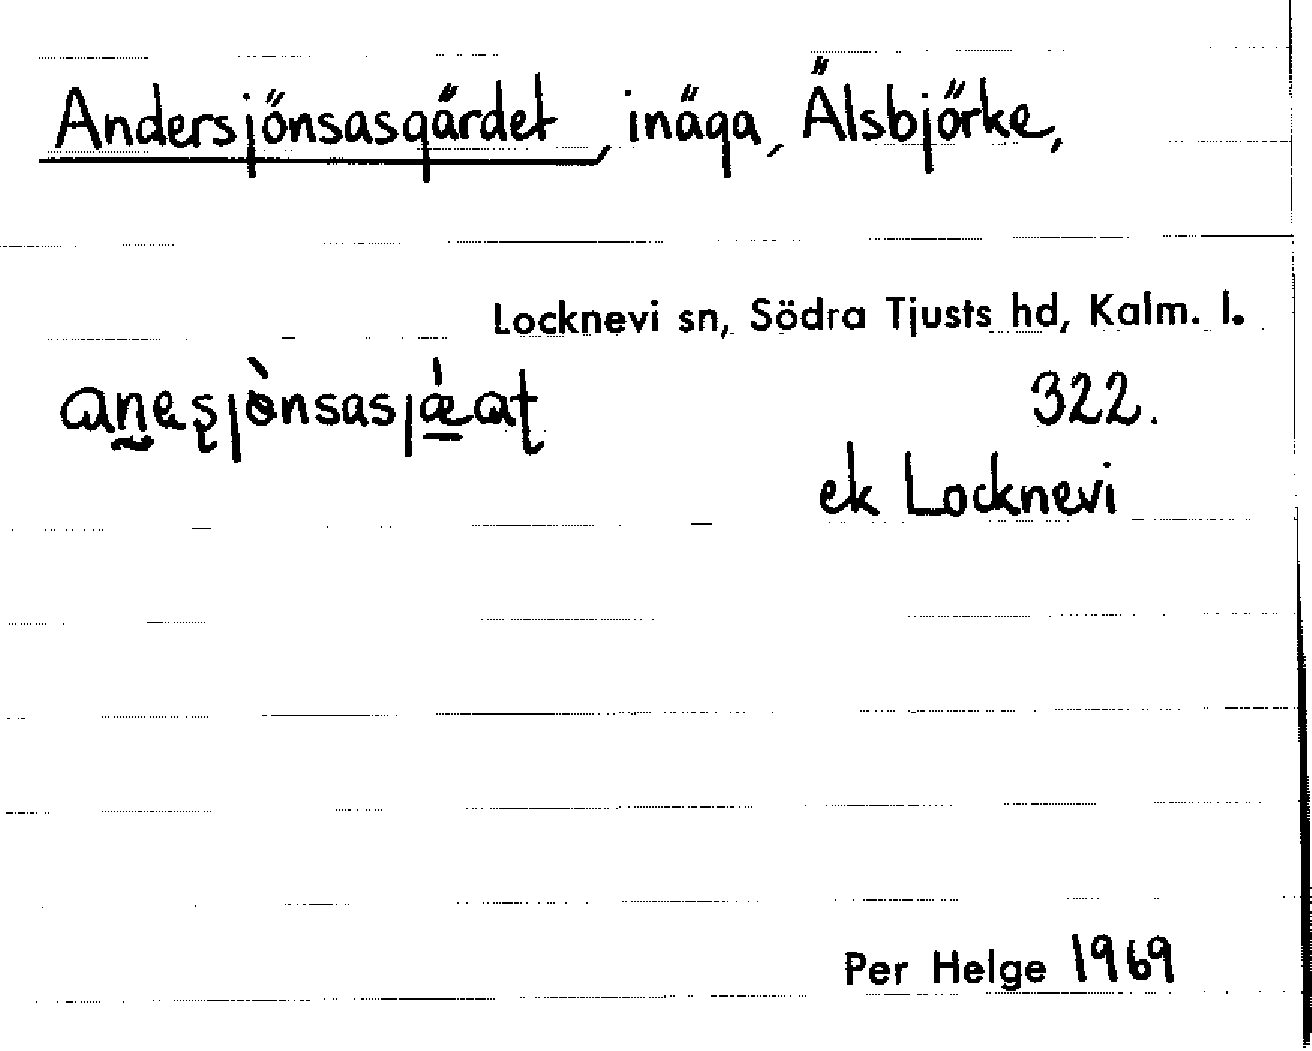 Andersjönsasgärdet, inäga, Älsbjörke,
Locknevi sn, Södra Tjusts hd, Kalm. l.
322.
ek Locknevi
Per Helge 1969